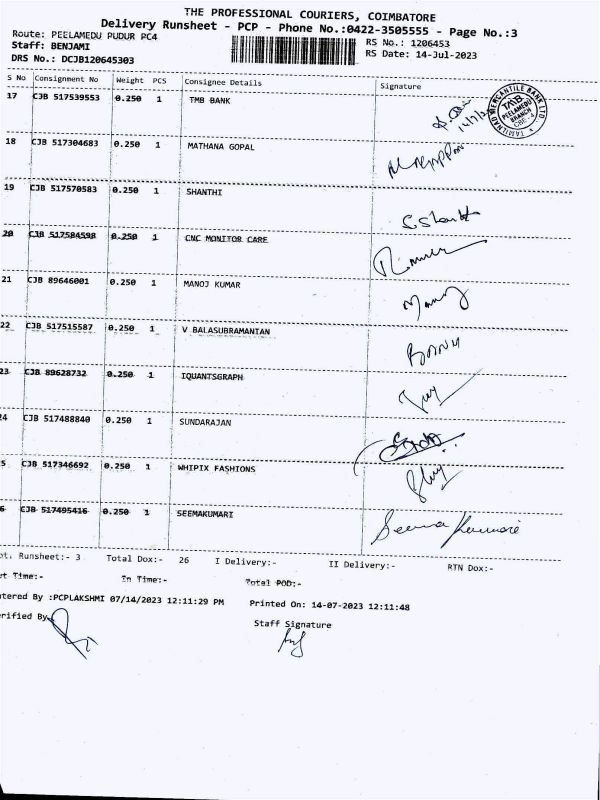 THE PROFESSIONAL COURIERS, COIMBATORE
Delivery Runsheet - PCP - Phone No.:0422-3505555 - Page No.:3
Route: PEELAMEDU PUDUR PC4
RS No.: 1206453
Staff: BENJAMI
RS Date: 14-Jul-2023
DRS No.: DCJB120645303
S No Consignment No Weight PCS Consignee Details Signature
17 CJB 517539553 0.250 1 TMB BANK
14/7/2
TAMILNAD MERCANTILE BANK LTD
TMB
PEELAMEDU
BRANCH
CBE - 4
18 CJB 517304683 0.250 1 MATHANA GOPAL
19 CJB 517570583 0.250 1 SHANTHI
S. Shanthi
20 CJB 517584598 0.250 1 CNC MONITOR CARE
21 CJB 89646001 0.250 1 MANOJ KUMAR
Manoj
22 CJB 517515587 0.250 1 V BALASUBRAMANIAN
23 CJB 89628732 0.250 1 IQUANTSGRAPH
24 CJB 517488840 0.250 1 SUNDARAJAN
5 CJB 517346692 0.250 1 WHIPIX FASHIONS
6 CJB 517495416 0.250 1 SEEMAKUMARI
Seema Kumari
ot. Runsheet:- 3 Total Dox:- 26 I Delivery:- II Delivery:- RTN Dox:-
ut Time:- In Time:- Total POD:-
ntered By :PCPLAKSHMI 07/14/2023 12:11:29 PM Printed On: 14-07-2023 12:11:48
erified By
Staff Signature